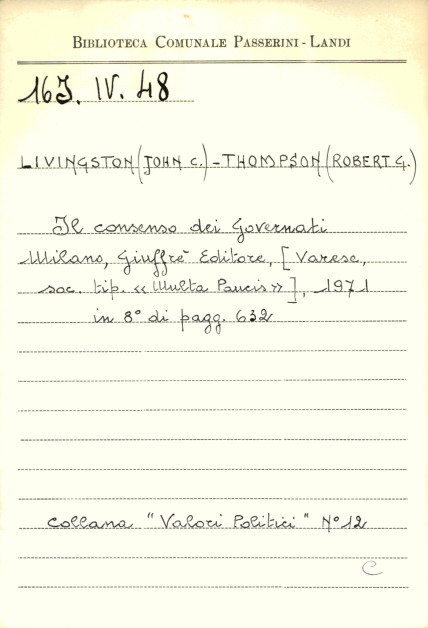 BIBLIOTECA COMUNALE PASSERINI - LANDI
16J. IV. 48
LIVINGSTON (JOHN C.) - THOMPSON (ROBERT G.)
Il consenso dei Governati
Milano, Giuffrè Editore, [Varese,
soc. tip. «Multa Paucis»], 1971
in 8° di pagg. 632
Collana "Valori Politici" N° 12
C